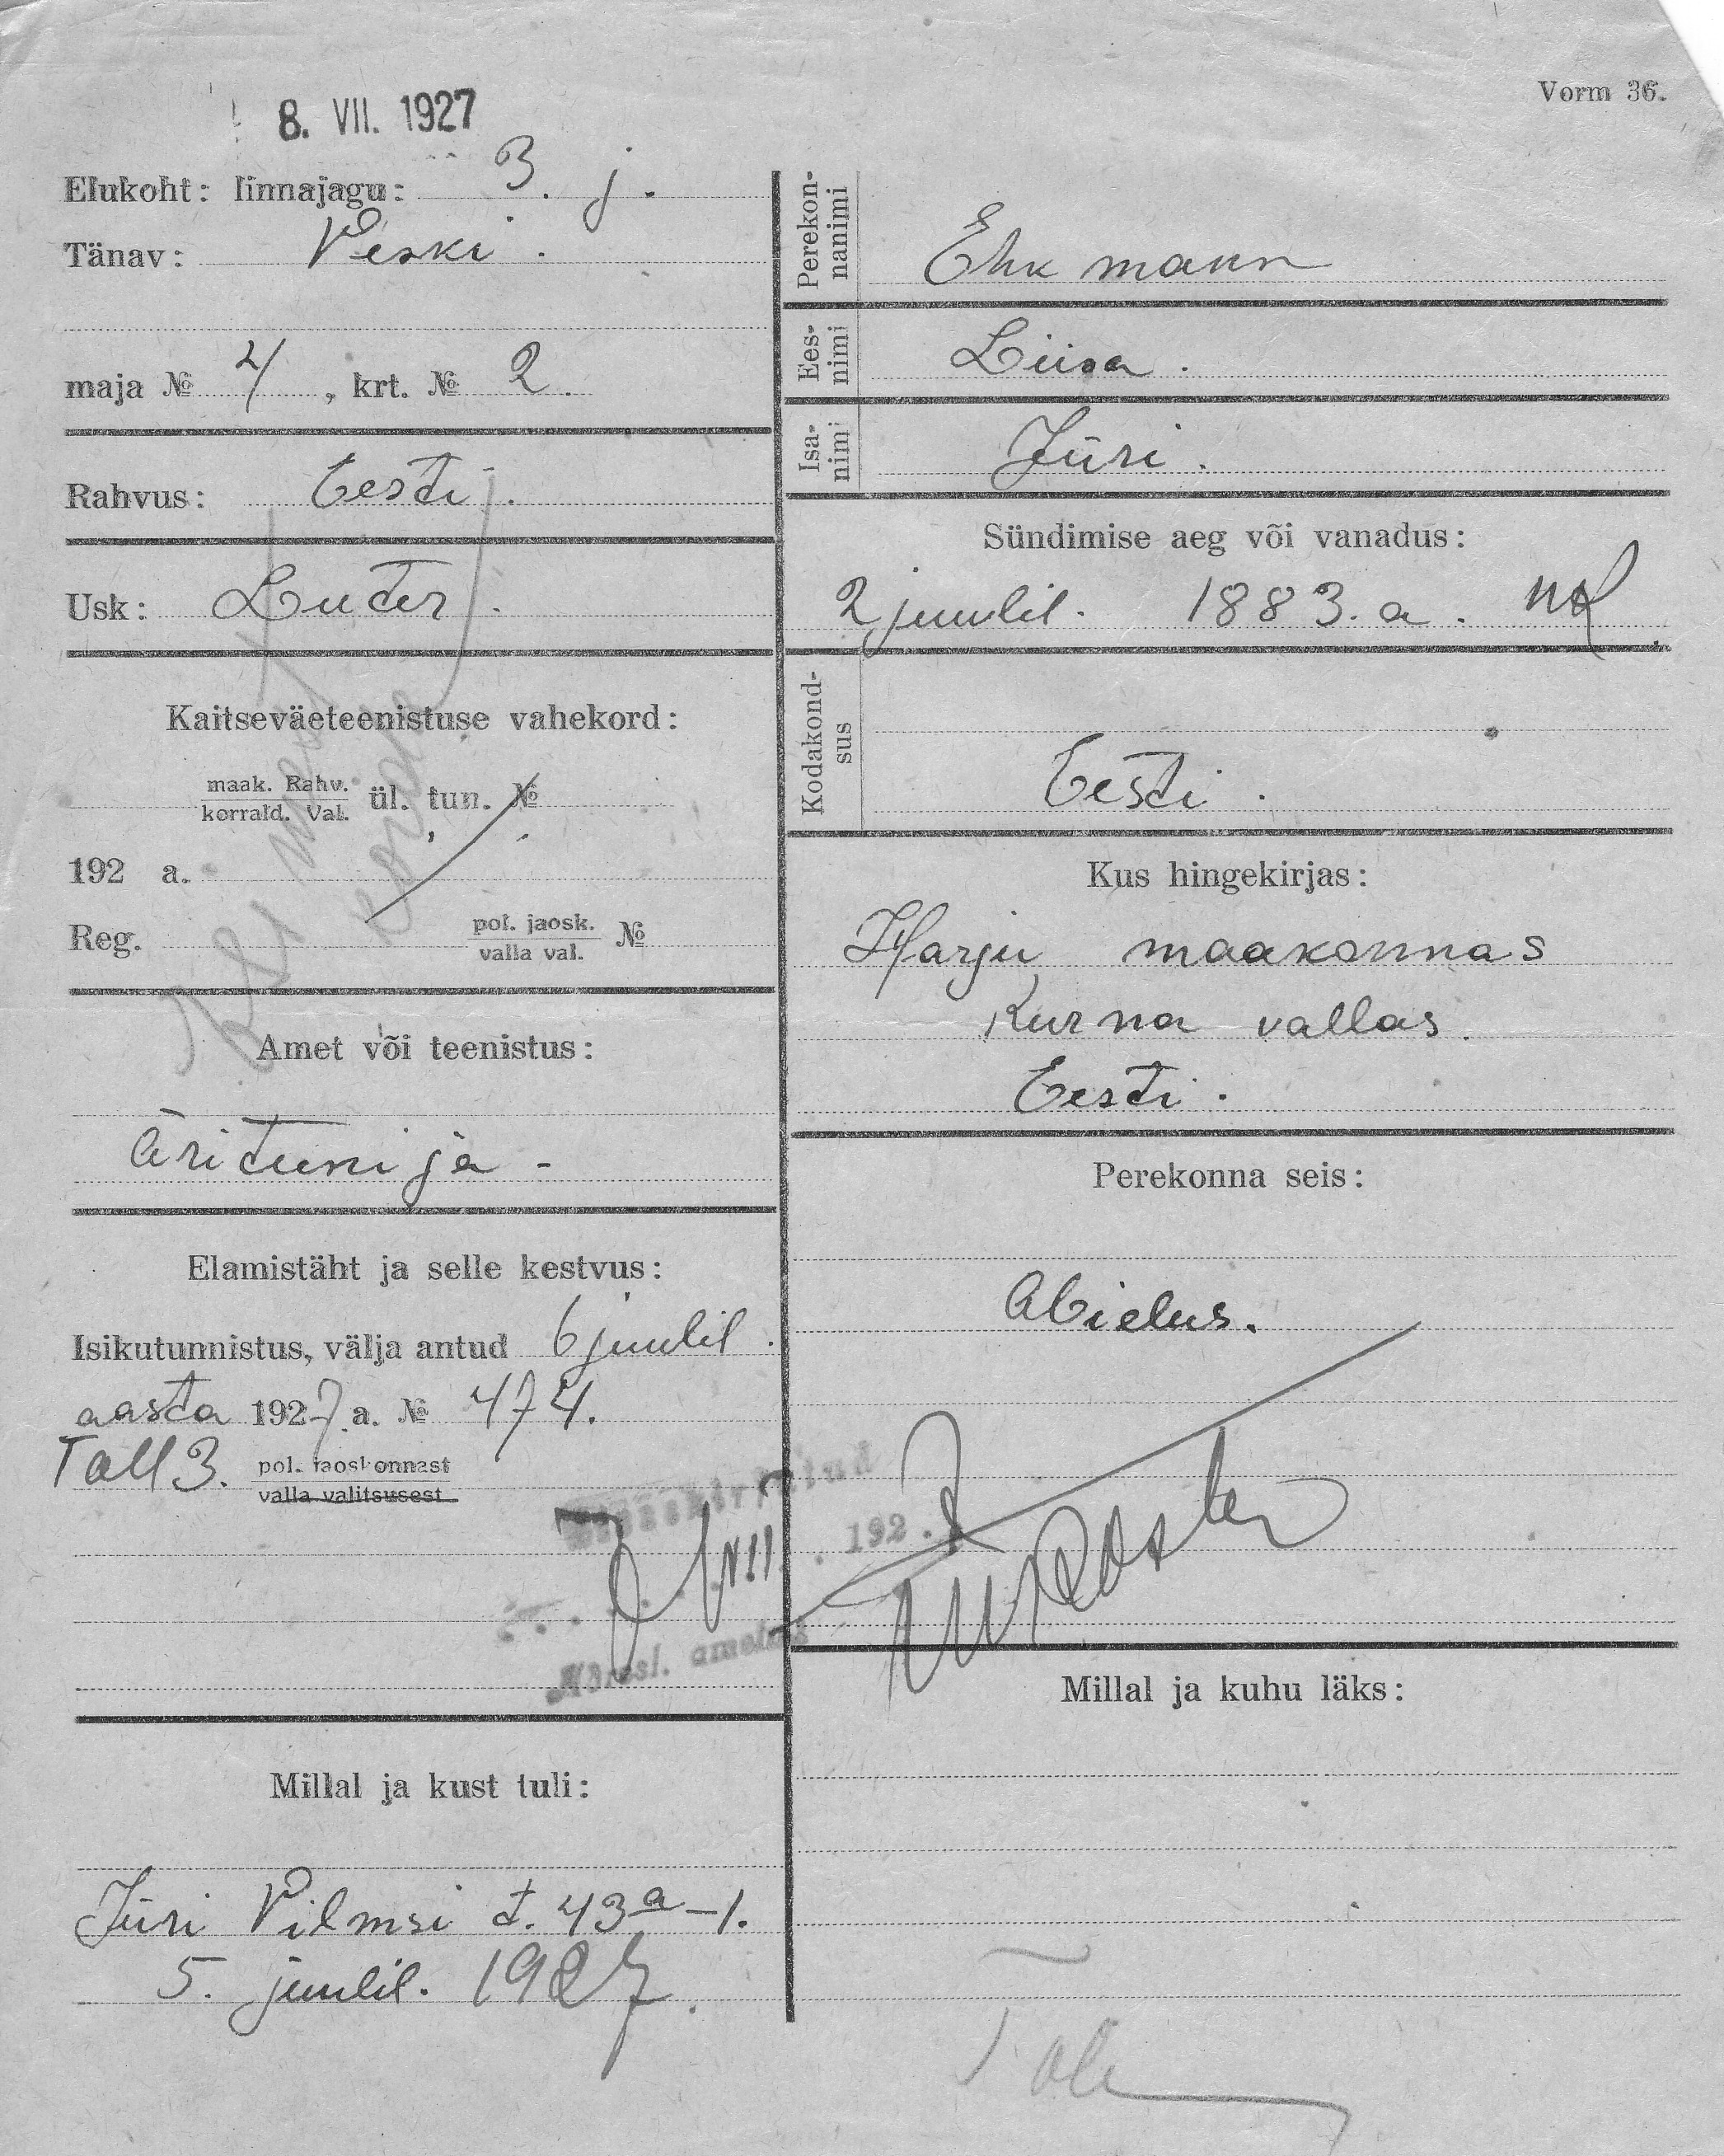 Vorm 36.
8. VII. 1927
Elukoht: linnajagu: 3. j.
Tänav: Veski.
maja № 4, krt. № 2.
Rahvus: Eesti.
Usk: Luter.
Kaitseväeteenistuse vahekord:
maak. Rahv.
korrald. Val. ül. tun. №
192 a.
Reg. pol. jaosk.
valla val. №
Amet või teenistus:
Äritenija -
Elamistäht ja selle kestvus:
Isikutunnistus, välja antud 6 juulil.
aasta 1927 a. № 474.
Tall 3. pol. jaoskonnast
valla valitsusest
192.
VII
Millal ja kust tuli:
Jüri Vilmsi t. 43a-1.
5. juulil. 1927.
Perekon-
nanimi
Ehkmann
Ees-
nimi
Liisa.
Isa-
nimi
Jüri.
Sündimise aeg või vanadus:
2 juulil. 1883. a.
Kodakond-
sus
Eesti.
Kus hingekirjas:
Harju maakonnas
Kurna vallas.
Eesti.
Perekonna seis:
Abielus.
Millal ja kuhu läks: